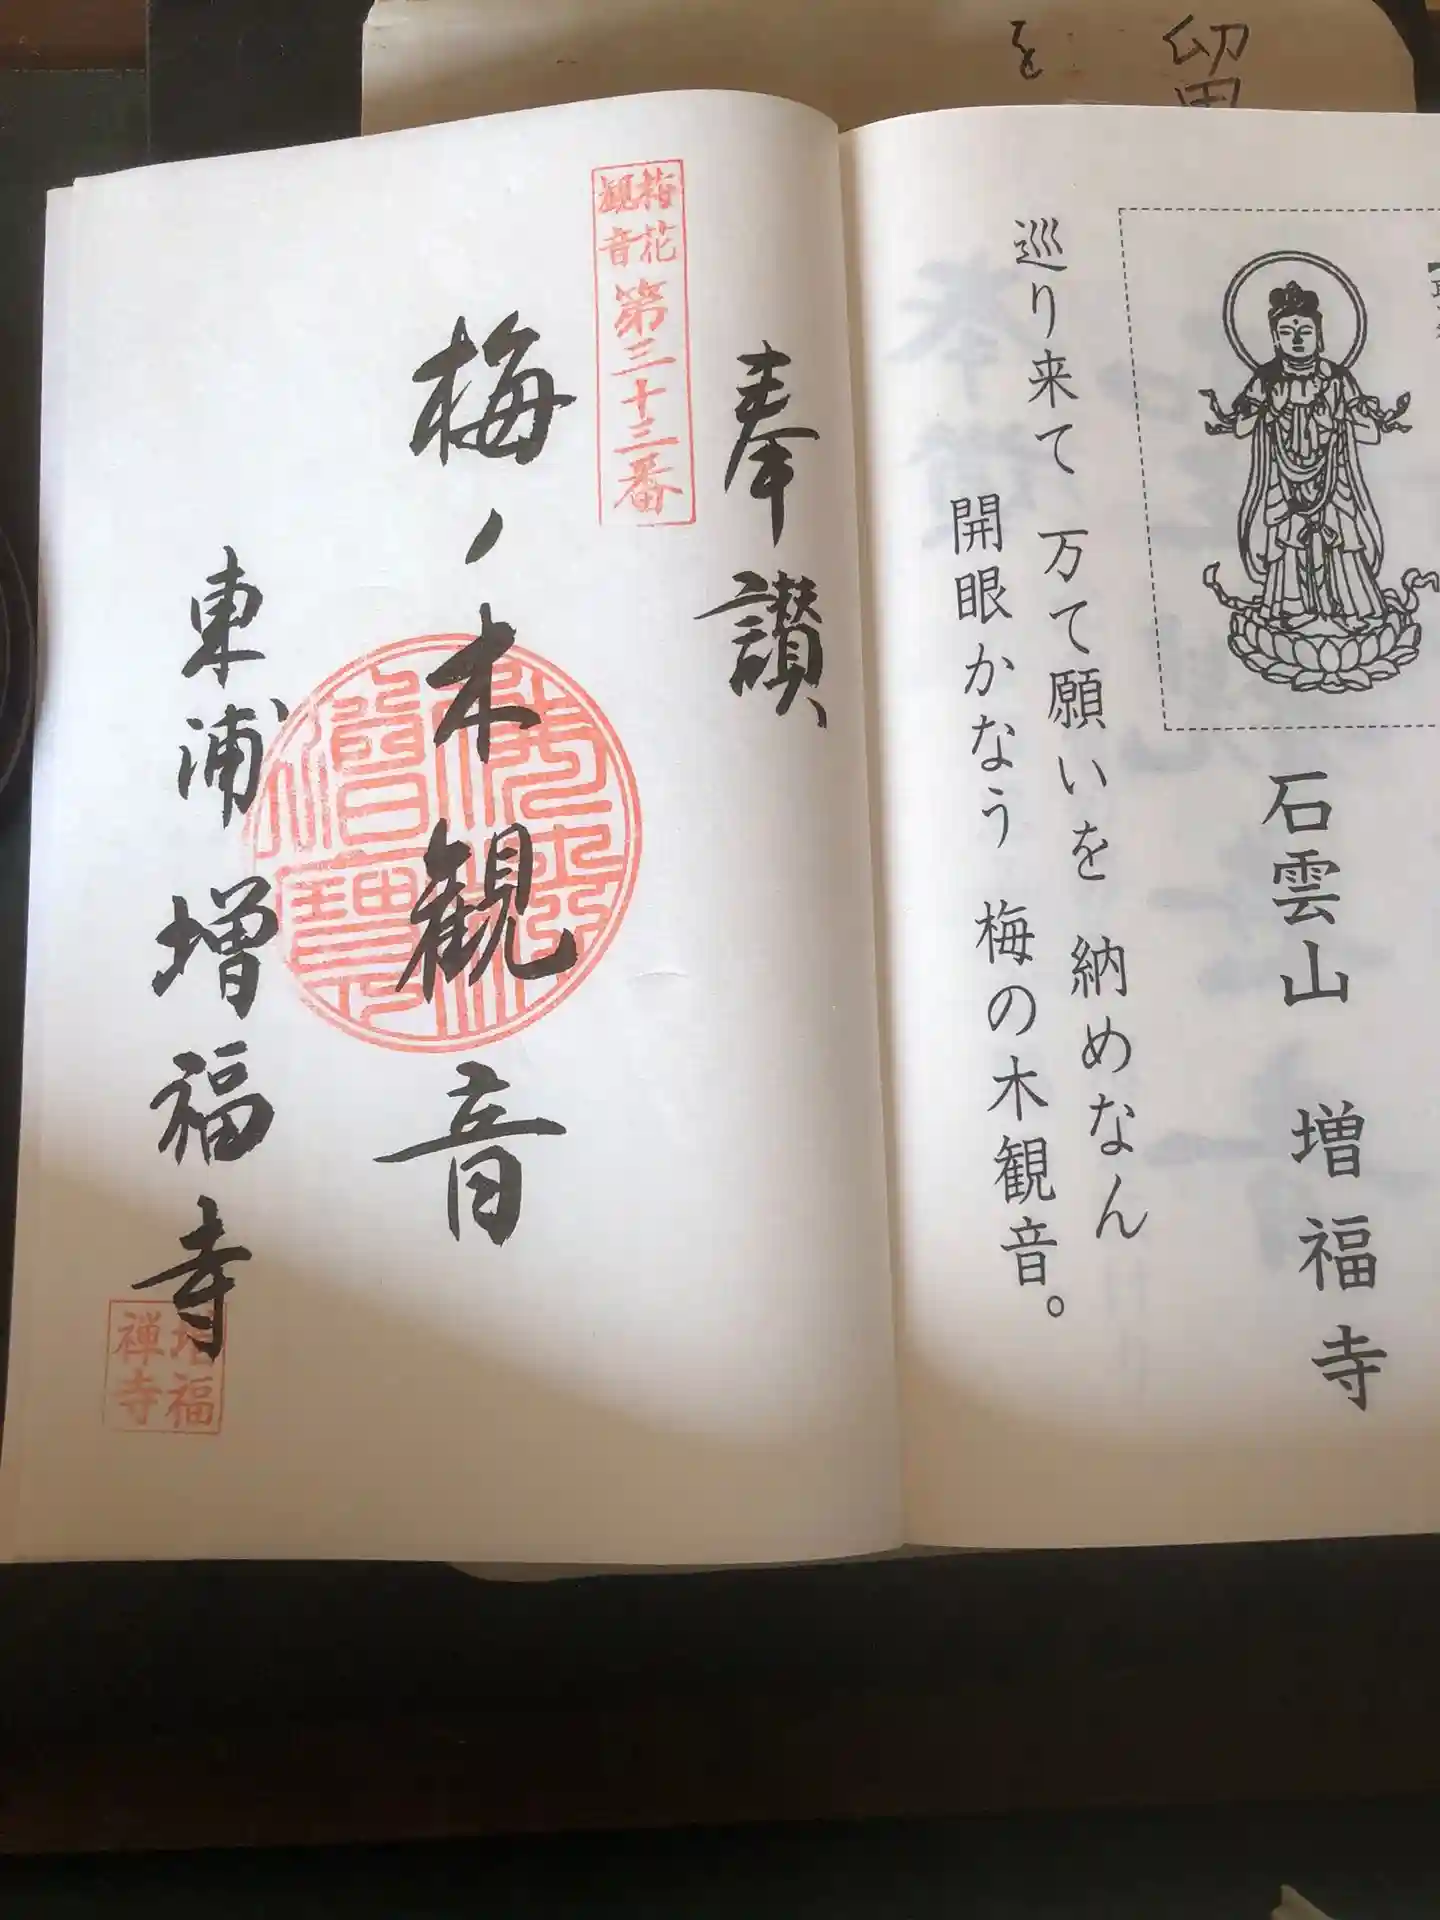 石雲山 増福寺
巡り来て 万て願いを 納めなん
開眼かなう 梅の木観音。
奉讃
梅花
観音
第三十三番
梅ノ木観音
東浦 増福寺
増福
禅寺